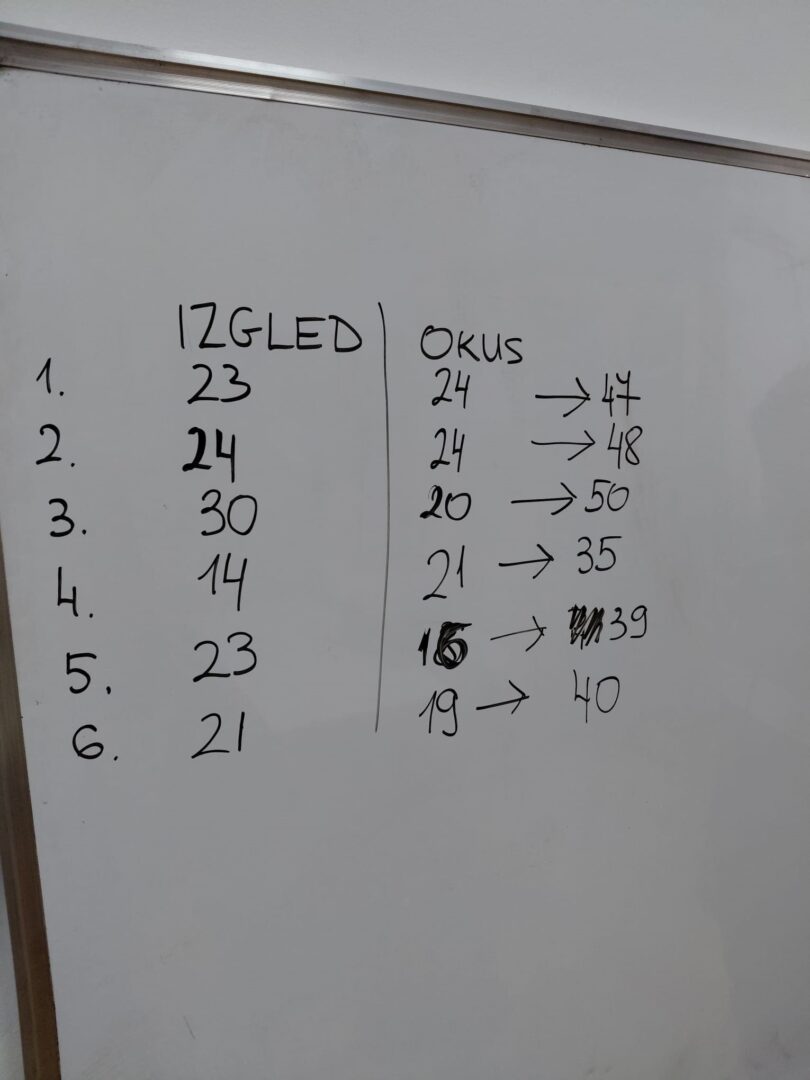 IZGLED OKUS
1. 23 24 → 47
2. 24 24 → 48
3. 30 20 → 50
4. 14 21 → 35
5. 23 16 → 39
6. 21 19 → 40